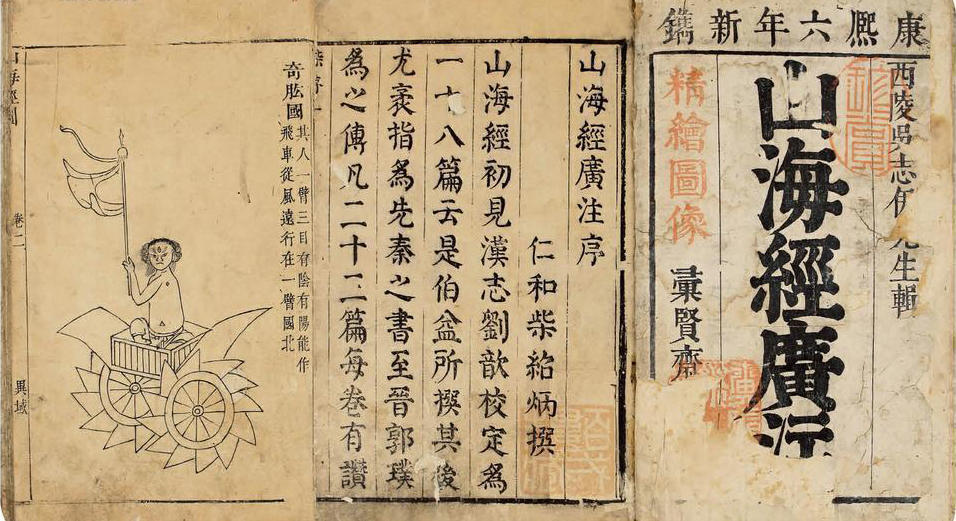 康熙六年新鐫
西陵吳志伊先生輯
山海經廣注
精繪圖像
彙賢齋
山海經廣注序
仁和柴紹炳撰
山海經初見漢志劉歆校定為
一十八篇云是伯益所撰其後
尤袤指為先秦之書至晉郭璞
為之傳凡二十二篇每卷有讚
柴序一
奇肱國其人一臂三目有陰有陽能作
飛車從風遠行在一臂國北
山海經圖
卷二
異域